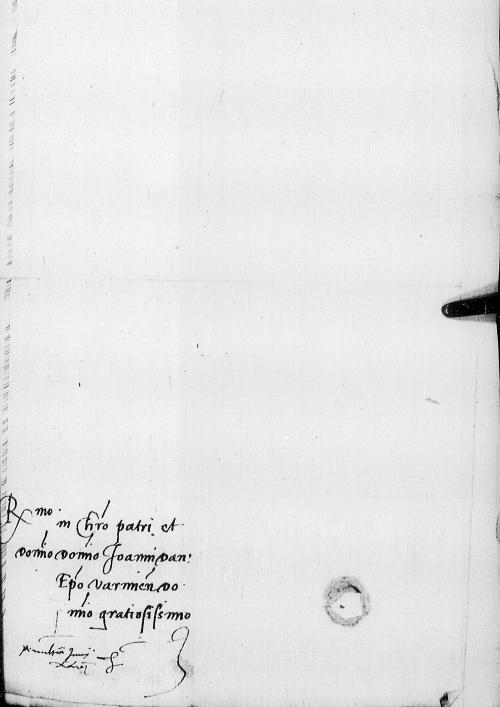 Rmo. in Chro patri et
domino domino Joanni Dan:
Epo varmien. do
mino gratiosissimo